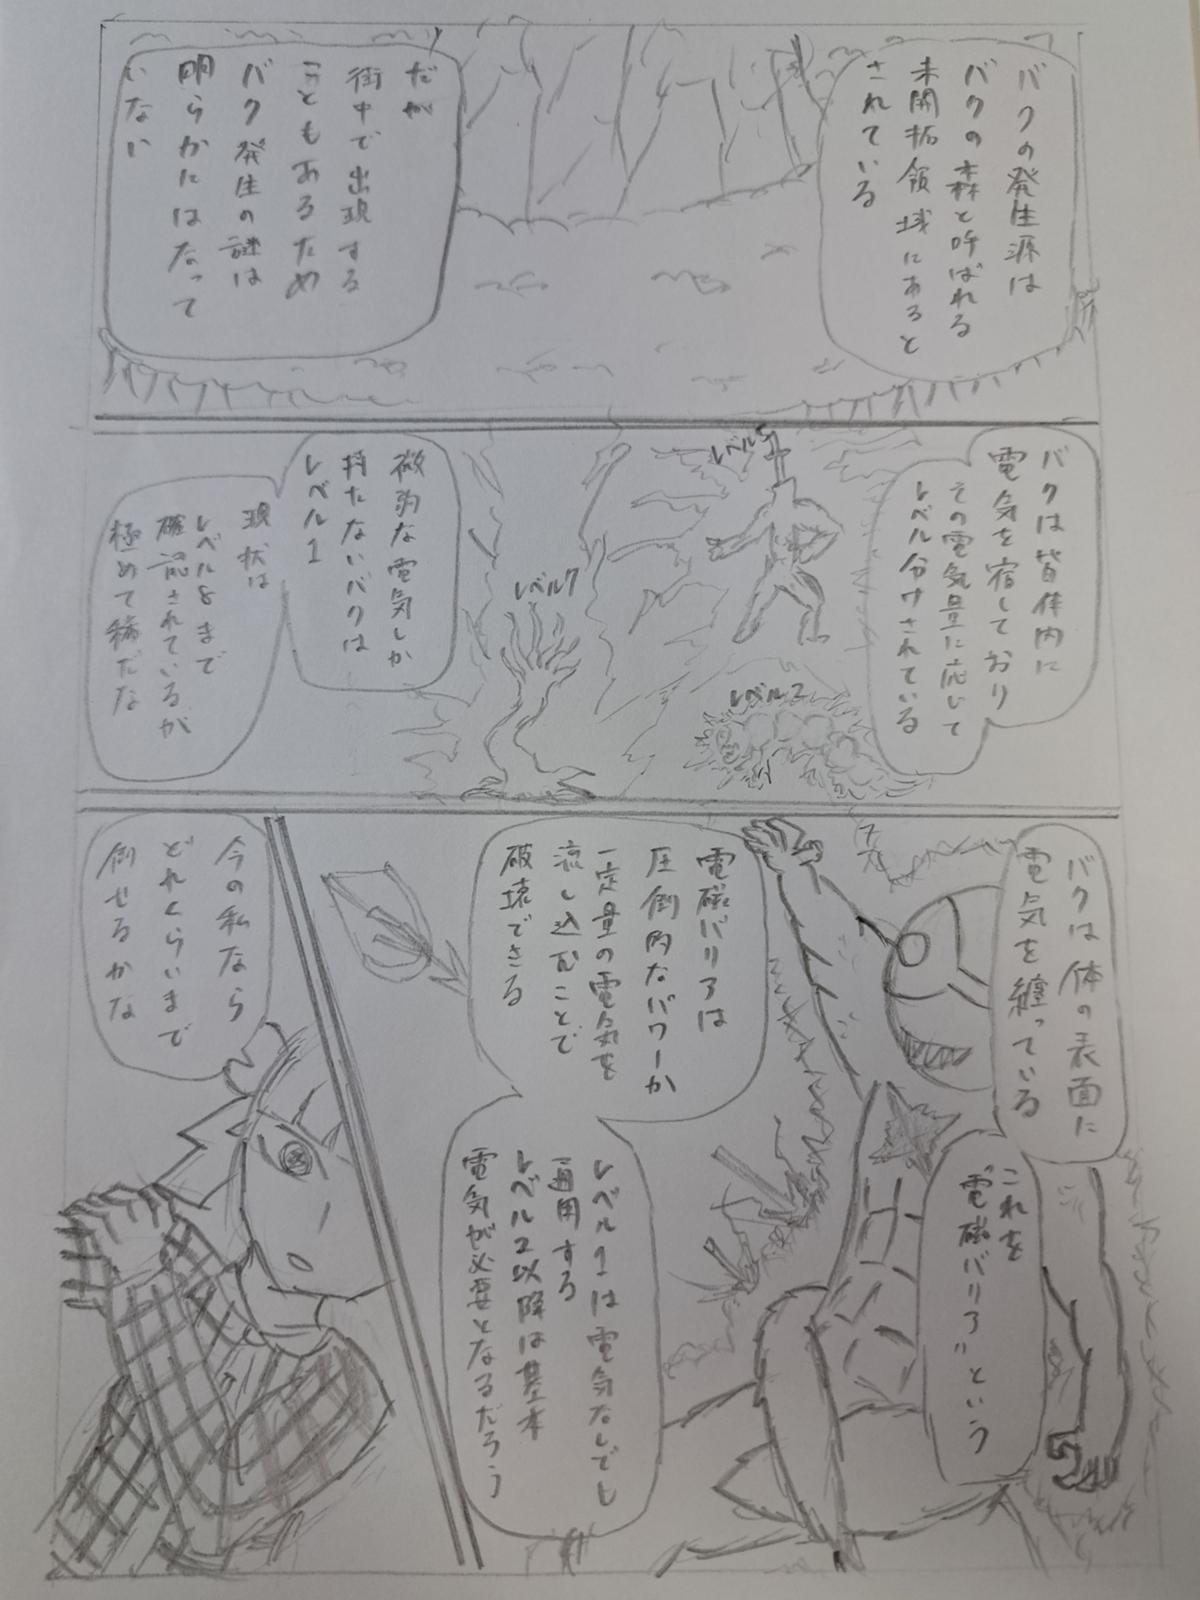 バクの発生源は
バクの森と呼ばれる
未開拓領域にあると
されている
だが
街中で出現する
こともあるため
バク発生の謎は
明らかにはなって
いない
バクは皆体内に
電気を宿しており
その電気量に応じて
レベル分けされている
レベル5
レベル2
レベル7
微弱な電気しか
持たないバクは
レベル1
現状は
レベル8まで
確認されているが
極めて稀だな
バクは体の表面に
電気を纏っている
これを
"電磁バリア"という
電磁バリアは
圧倒的なパワーか
一定量の電気を
流し込むことで
破壊できる
レベル1は電気なしでも
通用する
レベル2以降は基本
電気が必要となるだろう
今の私なら
どれくらいまで
倒せるかな